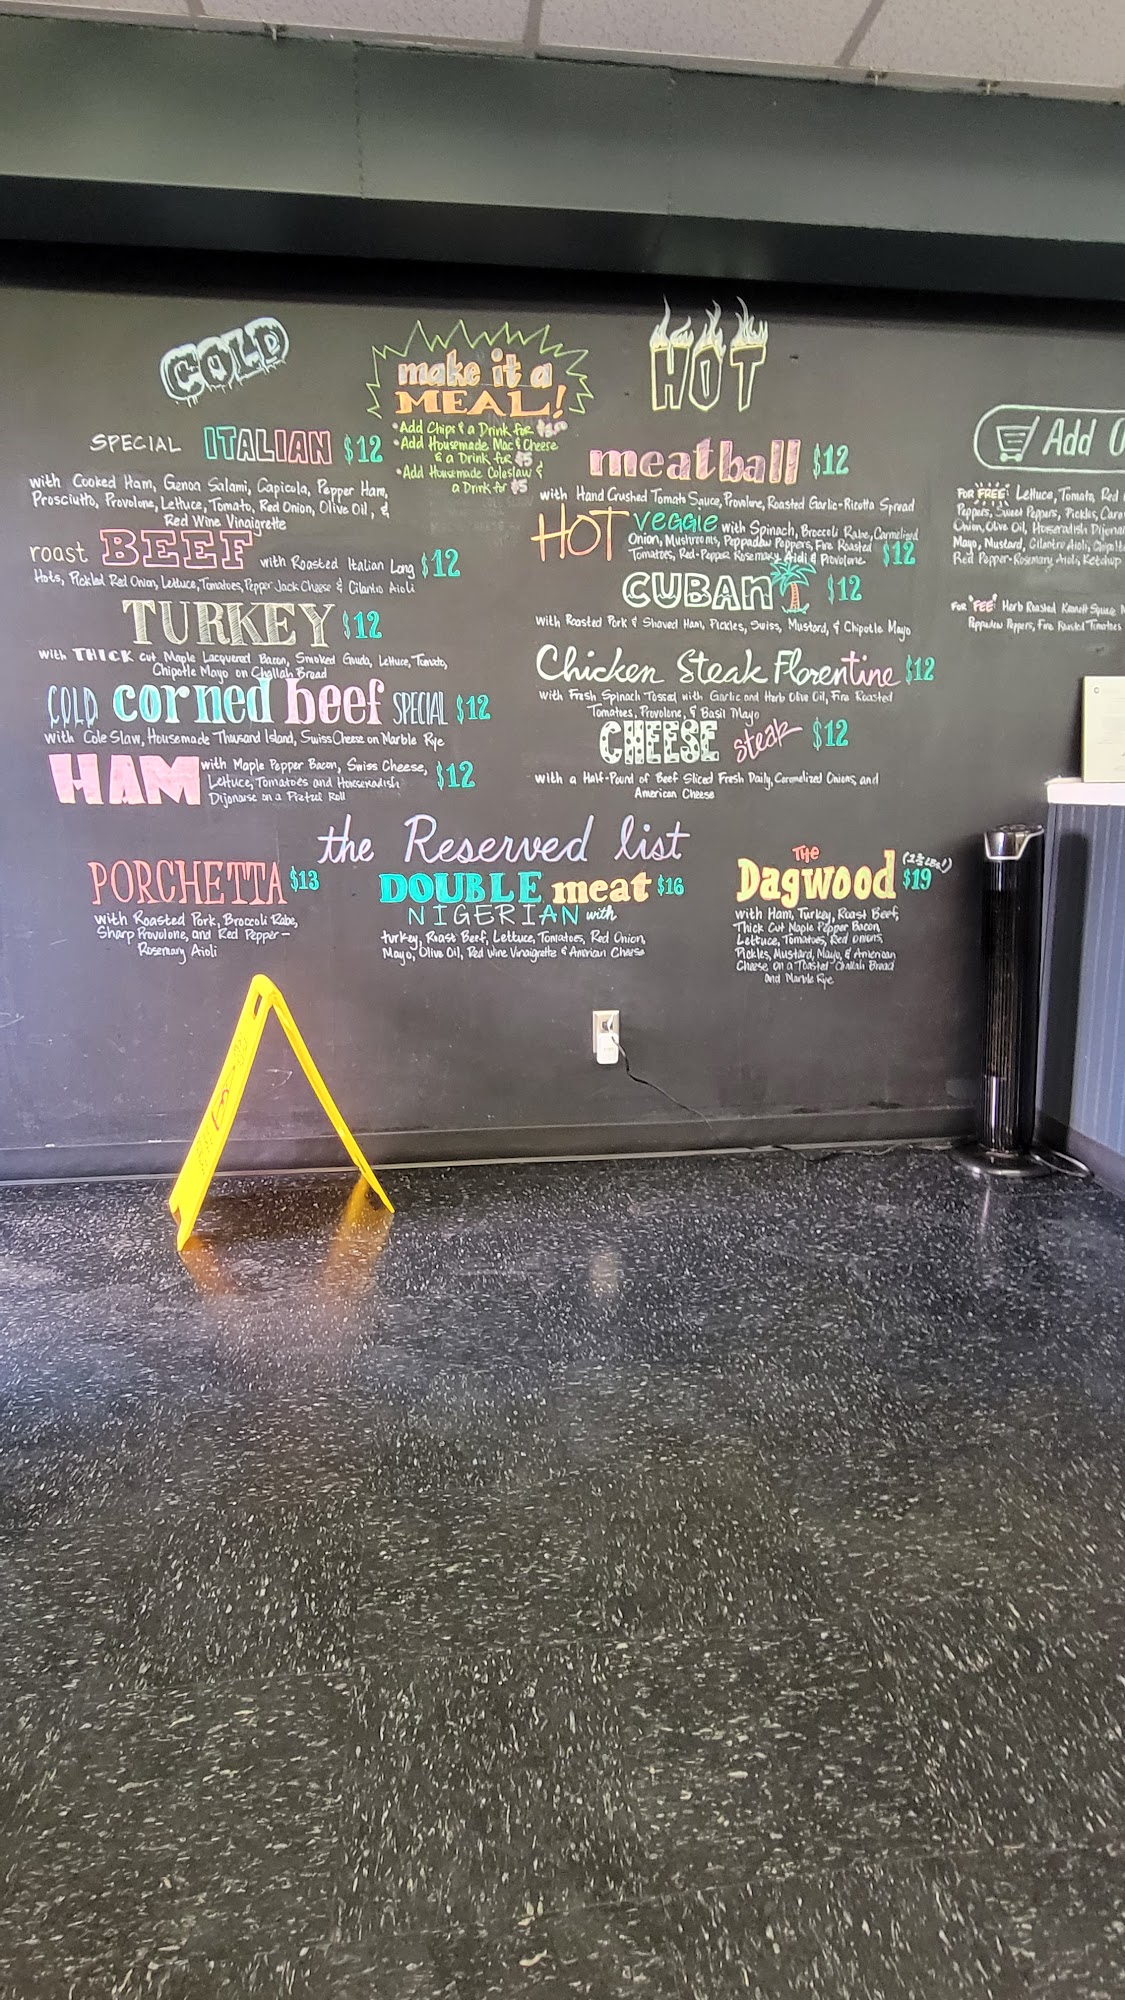 COLD
SPECIAL ITALIAN $12
with Cooked Ham, Genoa Salami, Capicola, Pepper Ham,
Prosciutto, Provolone, Lettuce, Tomato, Red Onion, Olive Oil, &
Red Wine Vinaigrette
roast BEEF with Roasted Italian Long $12
Hots, Pickled Red Onion, Lettuce, Tomatoes, Pepper Jack Cheese & Cilantro Aioli
TURKEY $12
with THICK cut Maple Lacquered Bacon, Smoked Gouda, Lettuce, Tomato,
Chipotle Mayo on Challah Bread
COLD corned beef SPECIAL $12
with Cole Slaw, Housemade Thousand Island, Swiss Cheese on Marble Rye
HAM with Maple Pepper Bacon, Swiss Cheese, $12
Lettuce, Tomatoes and Horseradish
Dijonaise on a Pretzel Roll
make it a
MEAL!
•Add Chips & a Drink for
•Add Housemade Mac & Cheese
& a Drink for $5
•Add Housemade Coleslaw &
a Drink for $5
HOT
meatball $12
with Hand Crushed Tomato Sauce, Provolone, Roasted Garlic-Ricotta Spread
HOT VEGGIE with Spinach, Broccoli Rabe, Carmelized
Onion, Mushrooms, Peppadew Peppers, Fire Roasted $12
Tomatoes, Red-Pepper Rosemary Aioli & Provolone
CUBAN $12
with Roasted Pork & Shaved Ham, Pickles, Swiss, Mustard, & Chipotle Mayo
Chicken Steak Florentine $12
with Fresh Spinach Tossed with Garlic and Herb Olive Oil, Fire Roasted
Tomatoes, Provolone, & Basil Mayo
CHEESE steak $12
with a Half-Pound of Beef Sliced Fresh Daily, Caramelized Onions, and
American Cheese
Add
FOR "FREE" Lettuce, Tomato, Red
Peppers, Sweet Peppers, Pickles,
Onion, Olive Oil, Horseradish
Mayo, Mustard, Cilantro Aioli,
Red Pepper-Rosemary Aioli, Ketchup
FOR "FEE" Herb Roasted Kennett Square
Peppadew Peppers, Fire Roasted Tomatoes
the Reserved list
PORCHETTA $13
with Roasted Pork, Broccoli Rabe,
Sharp Provolone, and Red Pepper-
Rosemary Aioli
DOUBLE meat $16
NIGERIAN with
turkey, Roast Beef, Lettuce, Tomatoes, Red Onion,
Mayo, Olive Oil, Red Wine Vinaigrette & American Cheese
THE
Dagwood $19
with Ham, Turkey, Roast Beef,
Thick Cut Maple Pepper Bacon,
Lettuce, Tomatoes, Red onions,
Pickles, Mustard, Mayo, & American
Cheese on a Toasted Challah Bread
and Marble Rye